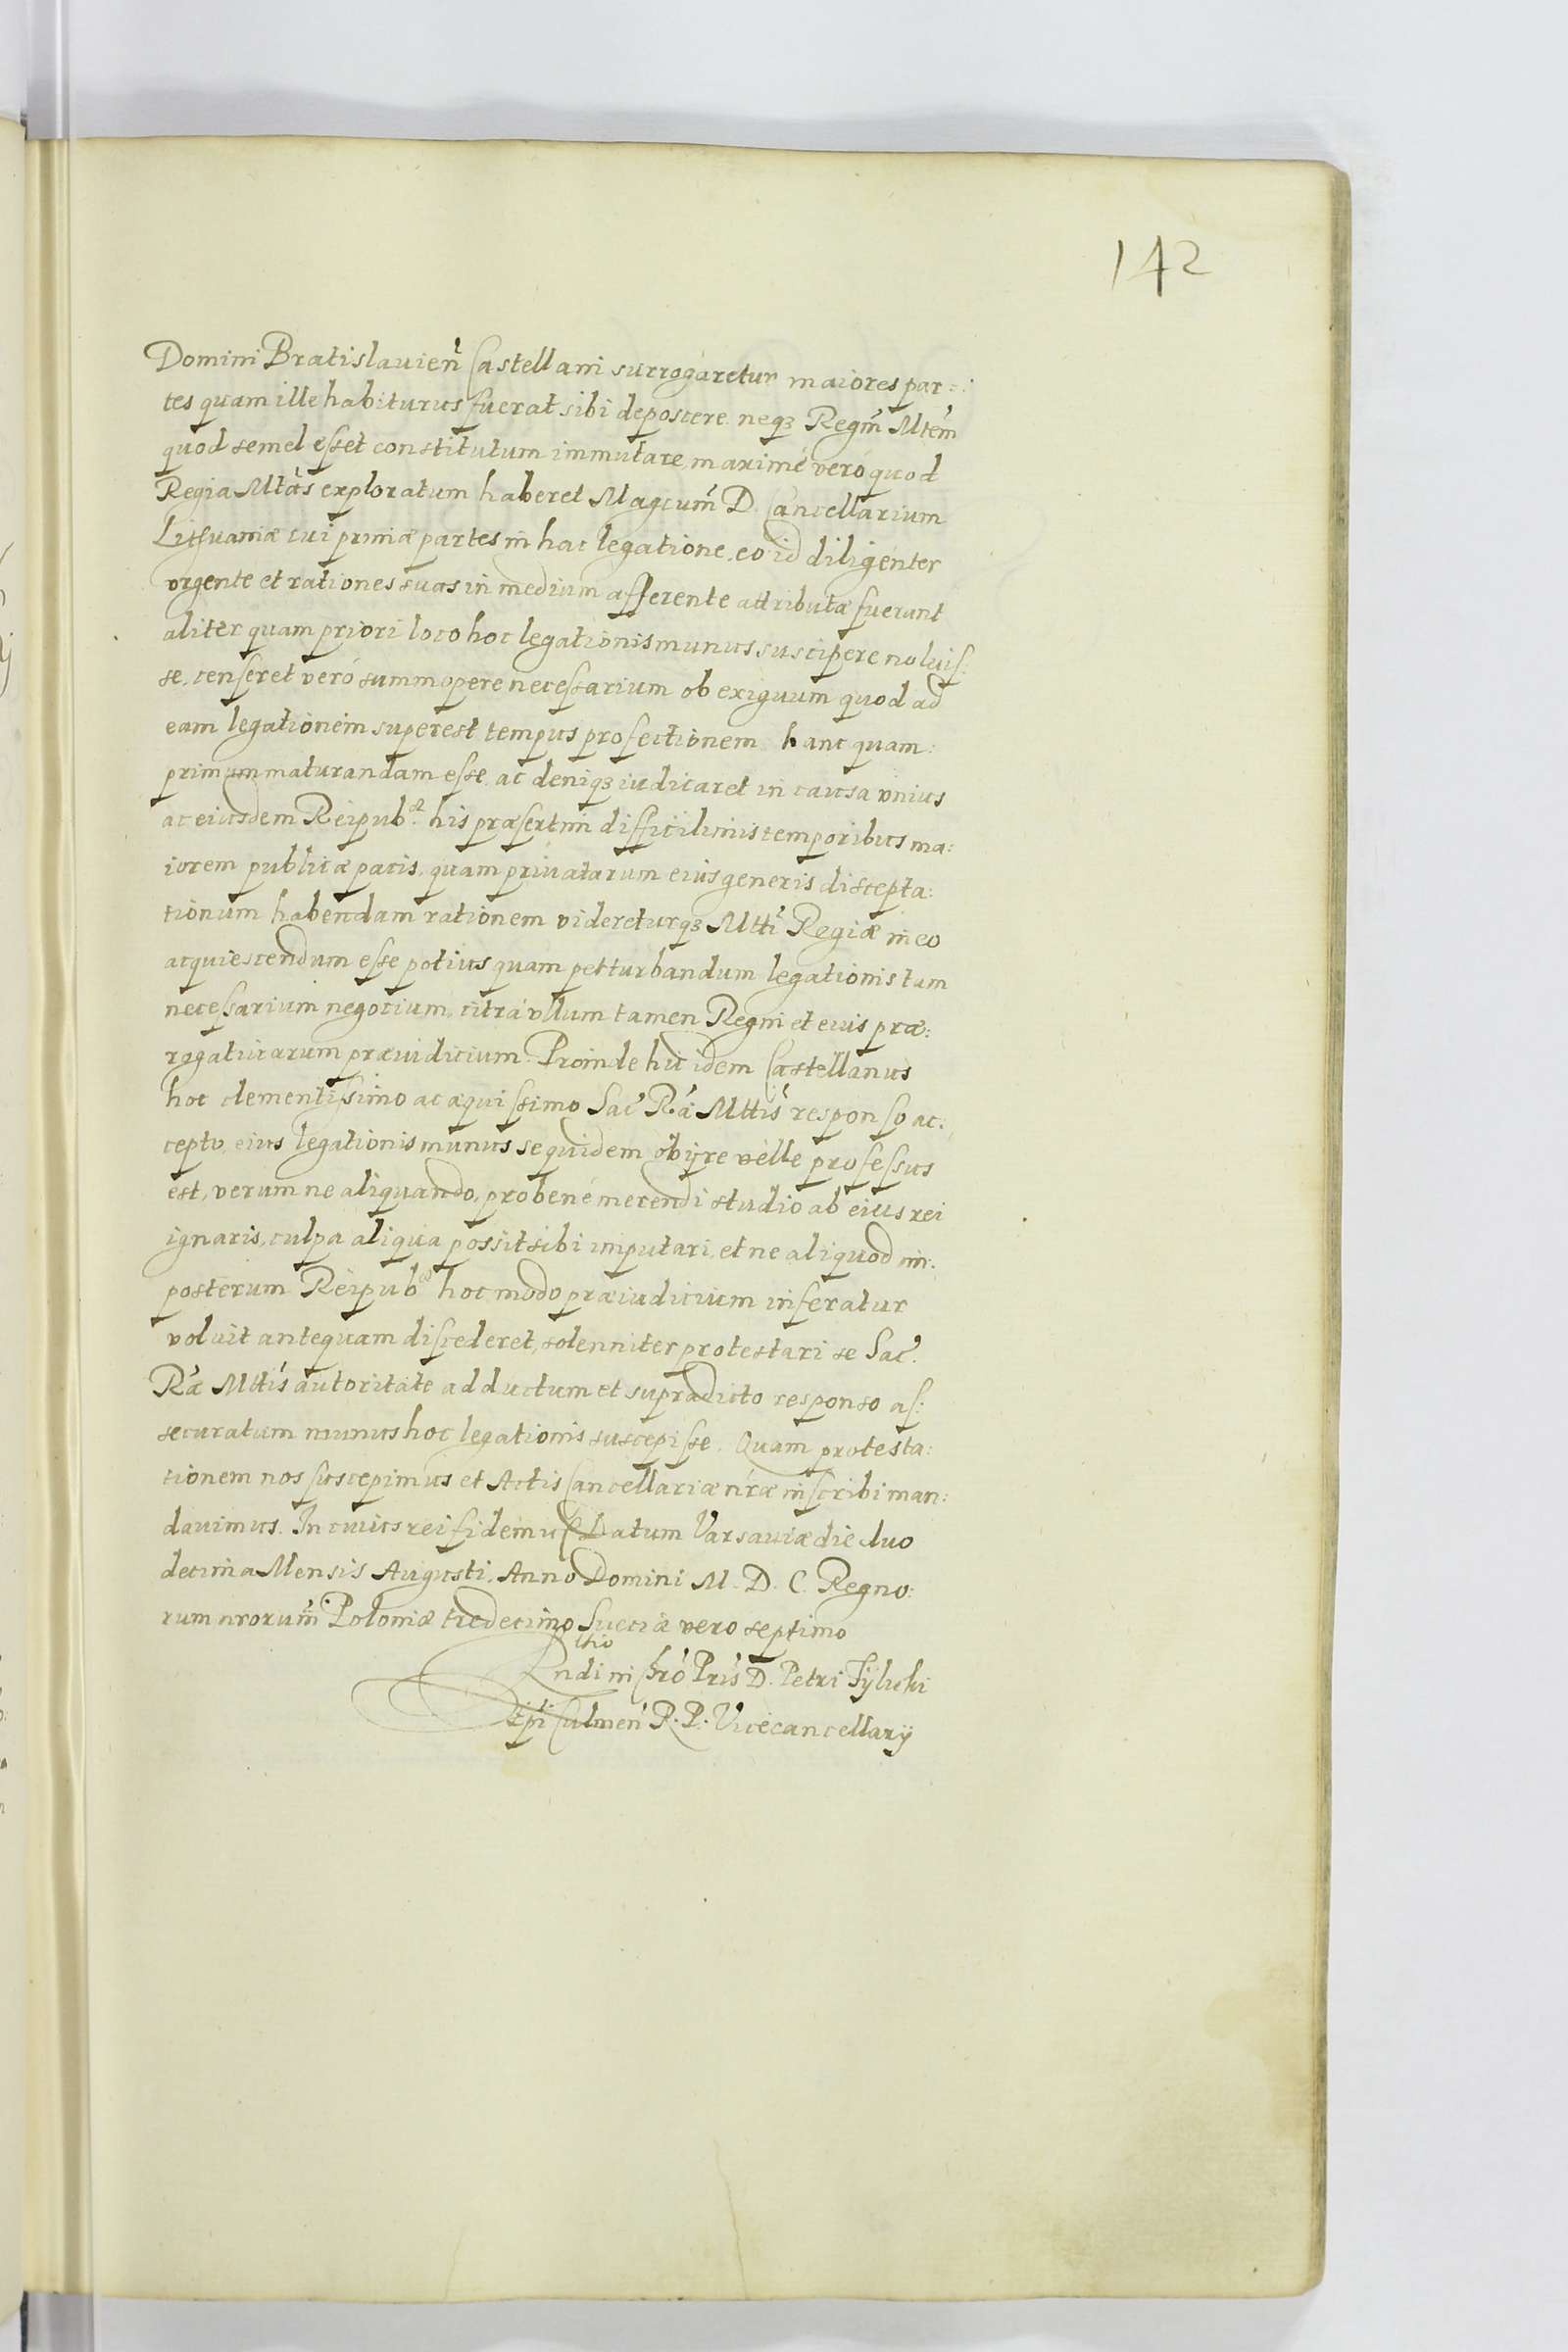 142
Domini Bratislavien̄ Castellani surrogaretur maiores par=
tes quam ille habiturus fuerat sibi deposcere neq₃ Regm̄ Mtem̄
quod semel esset constitutum immutare, maximè verò quod
Regia Mtās exploratum haberet Magcum̄ D. Cancellarium
Lithuaniæ cui primæ partes in hac legatione, eo id diligenter
vrgente et rationes suas in medium afferente attributæ fuerant
aliter quam priori loco hoc legationis munus suscipere noluis:
se, censeret verò summopere necessarium ob exiguum quod ad
eam legationem superest tempus profectionem hanc quam:
primum maturandam esse, ac deniq₃ iudicaret in causa vnius
ac eiusdem Reipub.æ his præsertim difficilimis temporibus ma:
iorem publicæ pacis, quam priuatarum eius generis discepta:
tionum habendam rationem videreturq₃ Mtti Regiæ in eo
acquiescendum esse potius quam petturbandum legationis tam
necessarium negocium, citrà vllum tamen Regni et eius præ:
rogatiuarum præiudicium. Proinde hic idem Castellanus
hoc clementissimo ac æquissimo Sac̄ R.æ Mttis responso ac:
cepto, eius legationis munus se quidem obijre velle professus
est, verum ne aliquando, pro bene merendi studio ab eius rei
ignaris, culpa aliqua possit sibi imputari, et ne aliquod in:
posterum Reipub.æ hoc modo præiudicium inferatur
voluit antequam discederet, solenniter protestari se Sac̄.
Ræ Mttis autoritate adductum et supradicto responso as:
securatum munus hoc legationis suscepisse. Quam protesta:
tionem nos suscepimus et Actis Cancellariæ nr̄æ inscribi man:
dauimus. In cuius rei fidem uſ Datum Varsauiæ die duo
decima Mensis Augusti. Anno Domini M. D. C. Regno:
rum nrorum̄ Poloniæ tredecimo Sueciæ vero septimo
Rndi in Chrō Pris D. Petri Tÿlicki
Epi Culmen̄ R. P. Vicecancellarij